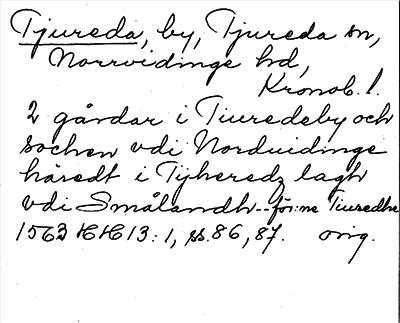 Tjureda, by, Tjureda sn,
Norrvidinge hd,
Kronob. l.
2 gårdar i Tiuredeby och
sochen vdi Norduidinge
häredt i Tijheredz lagh
vdi Smålandh -- för:ne Tiuredhe
1563 HH 13:1, ss. 86, 87. orig.